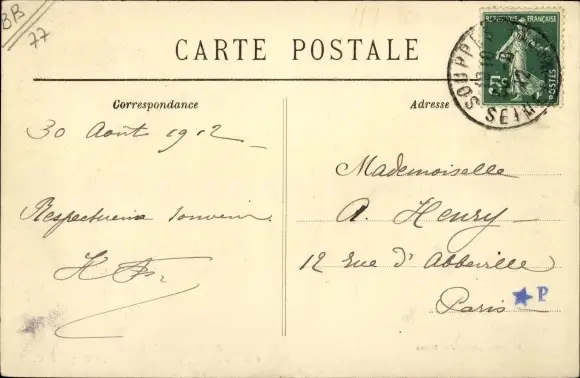 BB
77
CARTE POSTALE
RÉPUBLIQUE FRANÇAISE
5c
POSTES
SOUPPES
SEINE
Correspondance
Adresse
30 Août 1912
Mademoiselle
A. Henry
Respectueux souvenir
12 rue d'Abbeville
Paris
P